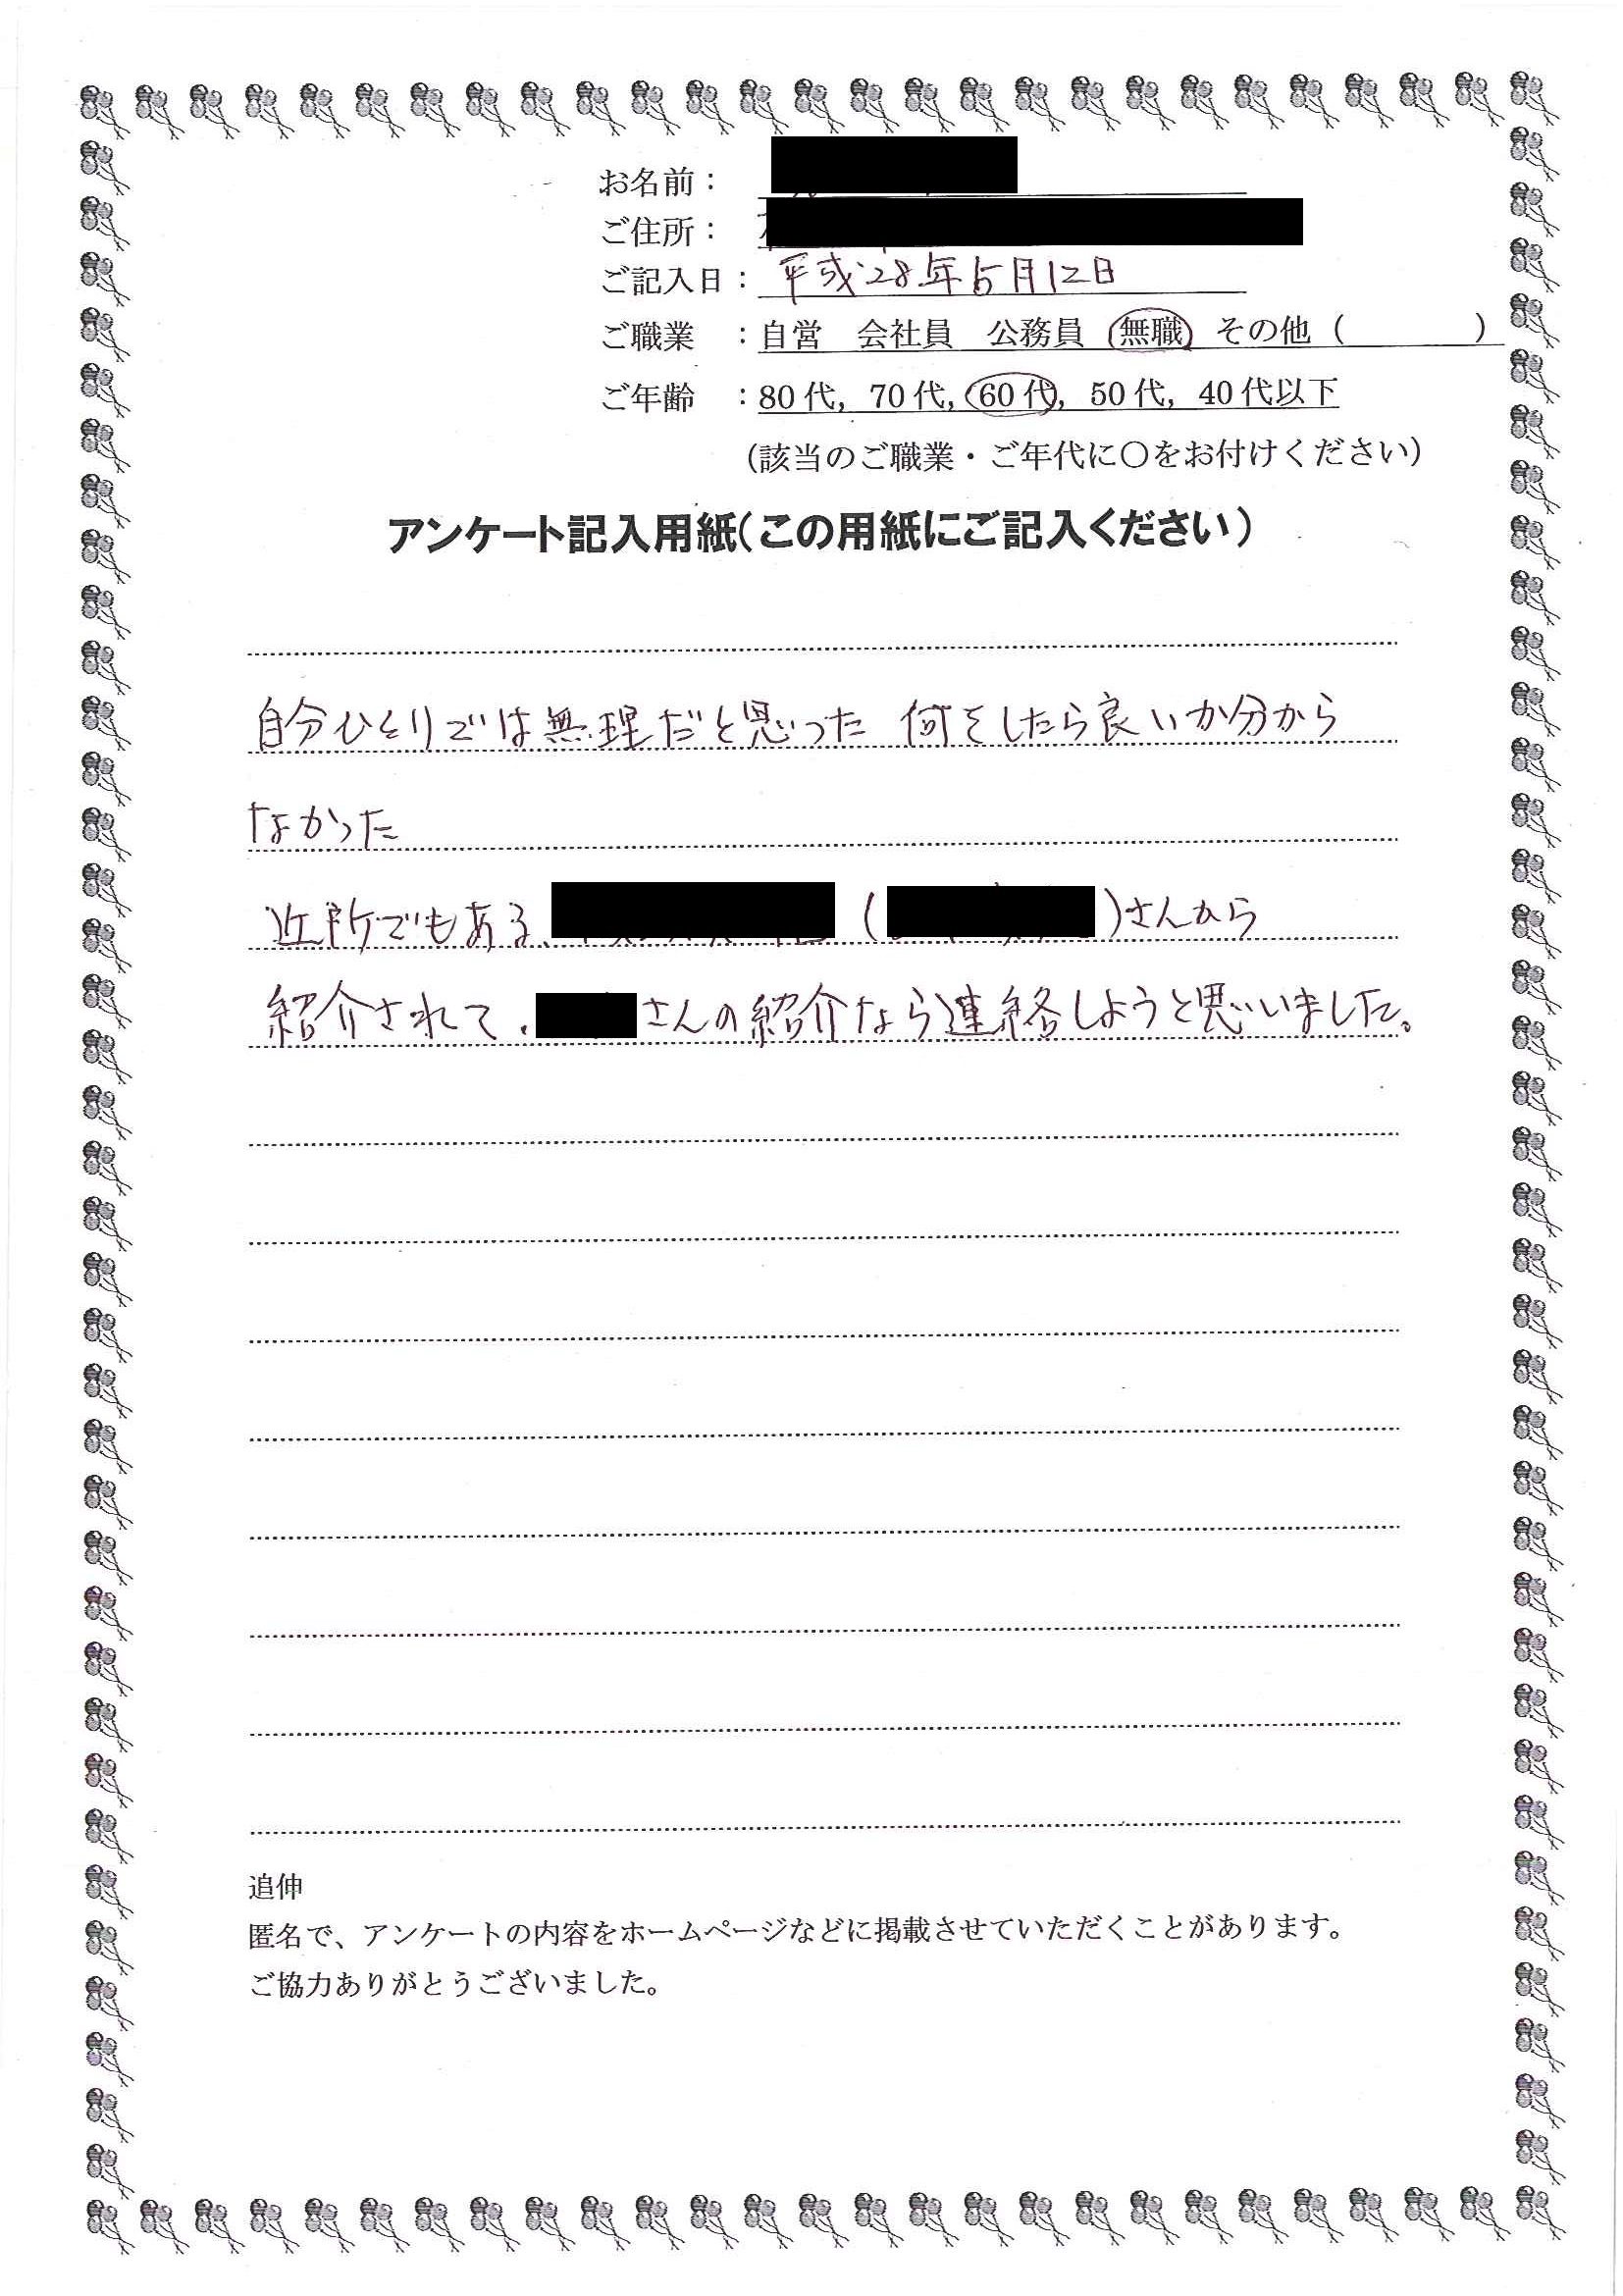 お名前：
ご住所：
ご記入日：平成28年5月12日
ご職業　：自営　会社員　公務員　無職　その他（　　　　）
ご年齢　：80代，70代，60代，50代，40代以下
（該当のご職業・ご年代に〇をお付けください）
アンケート記入用紙（この用紙にご記入ください）
自分ひとりでは無理だと思った 何をしたら良いか分から
なかった
近所でもある、（　）さんから
紹介されて、さんの紹介なら連絡しようと思いました。
追伸
匿名で、アンケートの内容をホームページなどに掲載させていただくことがあります。
ご協力ありがとうございました。